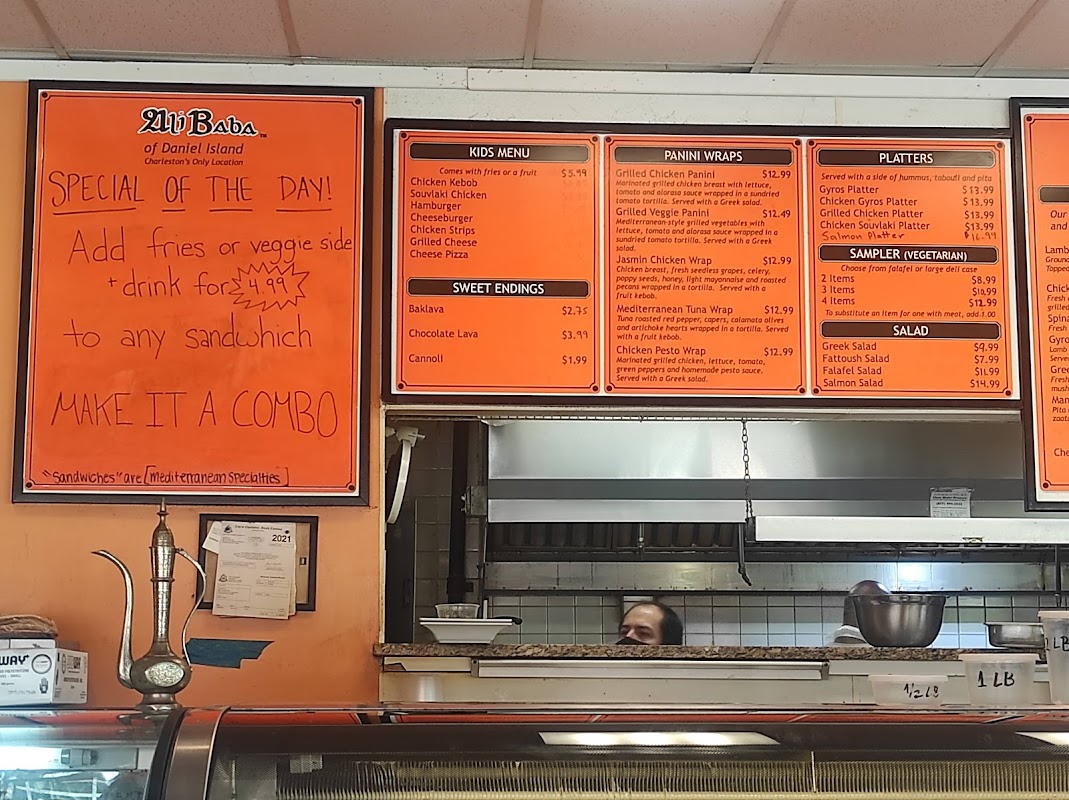 Ali Baba™
of Daniel Island
Charleston's Only Location
SPECIAL OF THE DAY!
Add fries or veggie side
+ drink for $4.99
to any sandwhich
MAKE IT A COMBO
"Sandwiches" are [mediterranean specialties]
KIDS MENU
Comes with fries or a fruit $5.99
Chicken Kebob
Souvlaki Chicken
Hamburger
Cheeseburger
Chicken Strips
Grilled Cheese
Cheese Pizza
SWEET ENDINGS
Baklava $2.75
Chocolate Lava $3.99
Cannoli $1.99
PANINI WRAPS
Grilled Chicken Panini $12.99
Marinated grilled chicken breast with lettuce,
tomato and alorasa sauce wrapped in a sundried
tomato tortilla. Served with a Greek salad.
Grilled Veggie Panini $12.49
Mediterranean-style grilled vegetables with
lettuce, tomato and alorasa sauce wrapped in a
sundried tomato tortilla. Served with a Greek
salad.
Jasmin Chicken Wrap $12.99
Chicken breast, fresh seedless grapes, celery,
poppy seeds, honey, light mayonnaise and roasted
pecans wrapped in a tortilla. Served with a
fruit kebob.
Mediterranean Tuna Wrap $12.99
Tuna roasted red pepper, capers, calamata olives
and artichoke hearts wrapped in a tortilla. Served
with a fruit kebob.
Chicken Pesto Wrap $12.99
Marinated grilled chicken, lettuce, tomato,
green peppers and homemade pesto sauce.
Served with a Greek salad.
PLATTERS
Served with a side of hummus, tabouli and pita
Gyros Platter $13.99
Chicken Gyros Platter $13.99
Grilled Chicken Platter $13.99
Chicken Souvlaki Platter $13.99
Salmon Platter $16.99
SAMPLER (VEGETARIAN)
Choose from falafel or large deli case
2 Items $8.99
3 Items $10.99
4 Items $12.99
To substitute an item for one with meat, add 1.00
SALAD
Greek Salad $9.99
Fattoush Salad $7.99
Falafel Salad $11.99
Salmon Salad $14.99
Our
and
Lamb
Ground
Topped
Chick
Fresh
grilled
Spina
Fresh
Gyro
Lamb
Serve
Gree
Fresh
mush
Man
Pita
zaat
Che
2021
WAY
1/2 LB
1 LB
1 LB